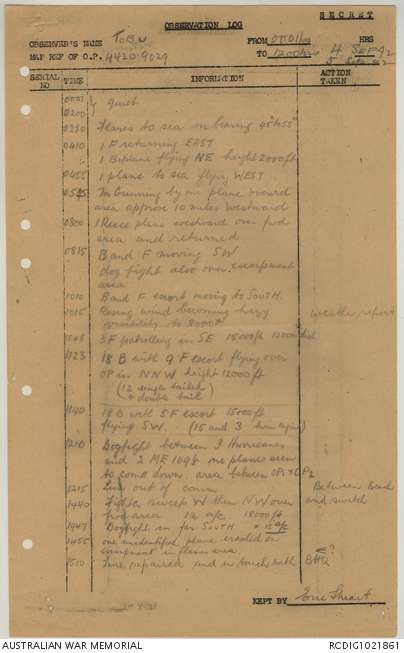 SECRET
OBSERVATION LOG
OBSERVER'S NAME
FROM 0001hrs HRS
MAP REF OF O.P. 4420 9029 TO 1200hrs
SERIAL NO TIME INFORMATION ACTION TAKEN
0001
0200 } quiet
0230 Flares to sea on bearing 45° to 55°
0410 1 F returning EAST
1 B plane flying NE height 2000 ft
0455 1 plane to sea flying WEST
M Gunning by one plane around
area approx 10 miles westward
0800 1 Recce plane westward over fwd
area and returned
0815 B and F moving SW
dog fight also over escarpment
area
1010 B and F escort moving to SOUTH.
1015 Rising wind becoming hazy weather report
visibility to 8000x
3 F patrolling in SE 15000 ft 12000
1123 18 B with 9 F escort flying over
OP in NNW height 12000 ft
(12 single tailed
6 double tail)
1140 18 B with 5 F escort 15000 ft
flying SW. (15 and 3
1210 Dogfight between 3 Hurricanes
and 2 ME 109s no planes seen
to come down. area between OP1 & OP2
1215 Line out of comm Between Bend
and switch
1440 Fighter sweep W then NW over
area 12 a/c 18000 ft
1447 Dogfight in far SOUTH
1455 one unidentified plane crashed on
escarpment in area
1510 Line repaired and in touch with BHQ
KEPT BY Eric Stuart
AUSTRALIAN WAR MEMORIAL RCDIG1021861